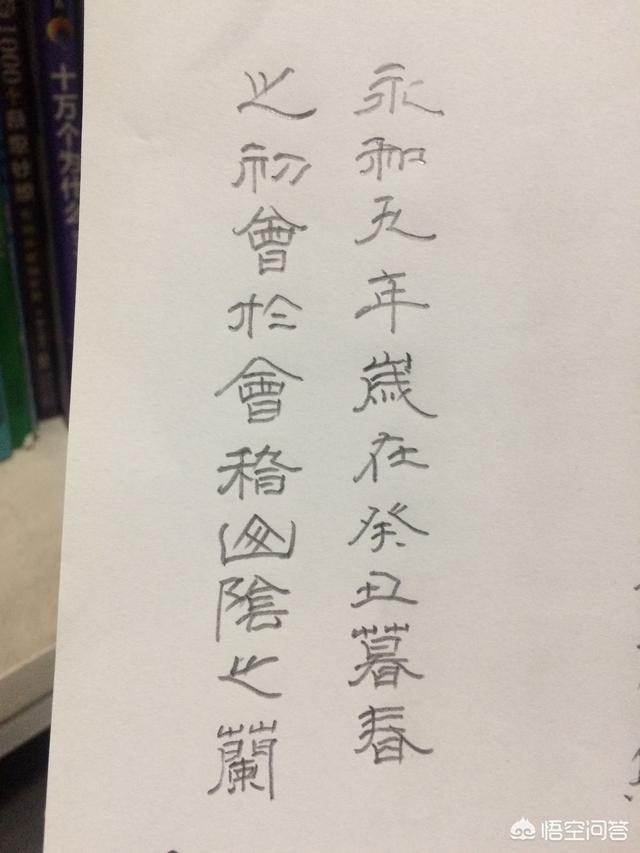 永和九年歲在癸丑暮春
之初會於會稽山陰之蘭
十万个为什么
悟空问答